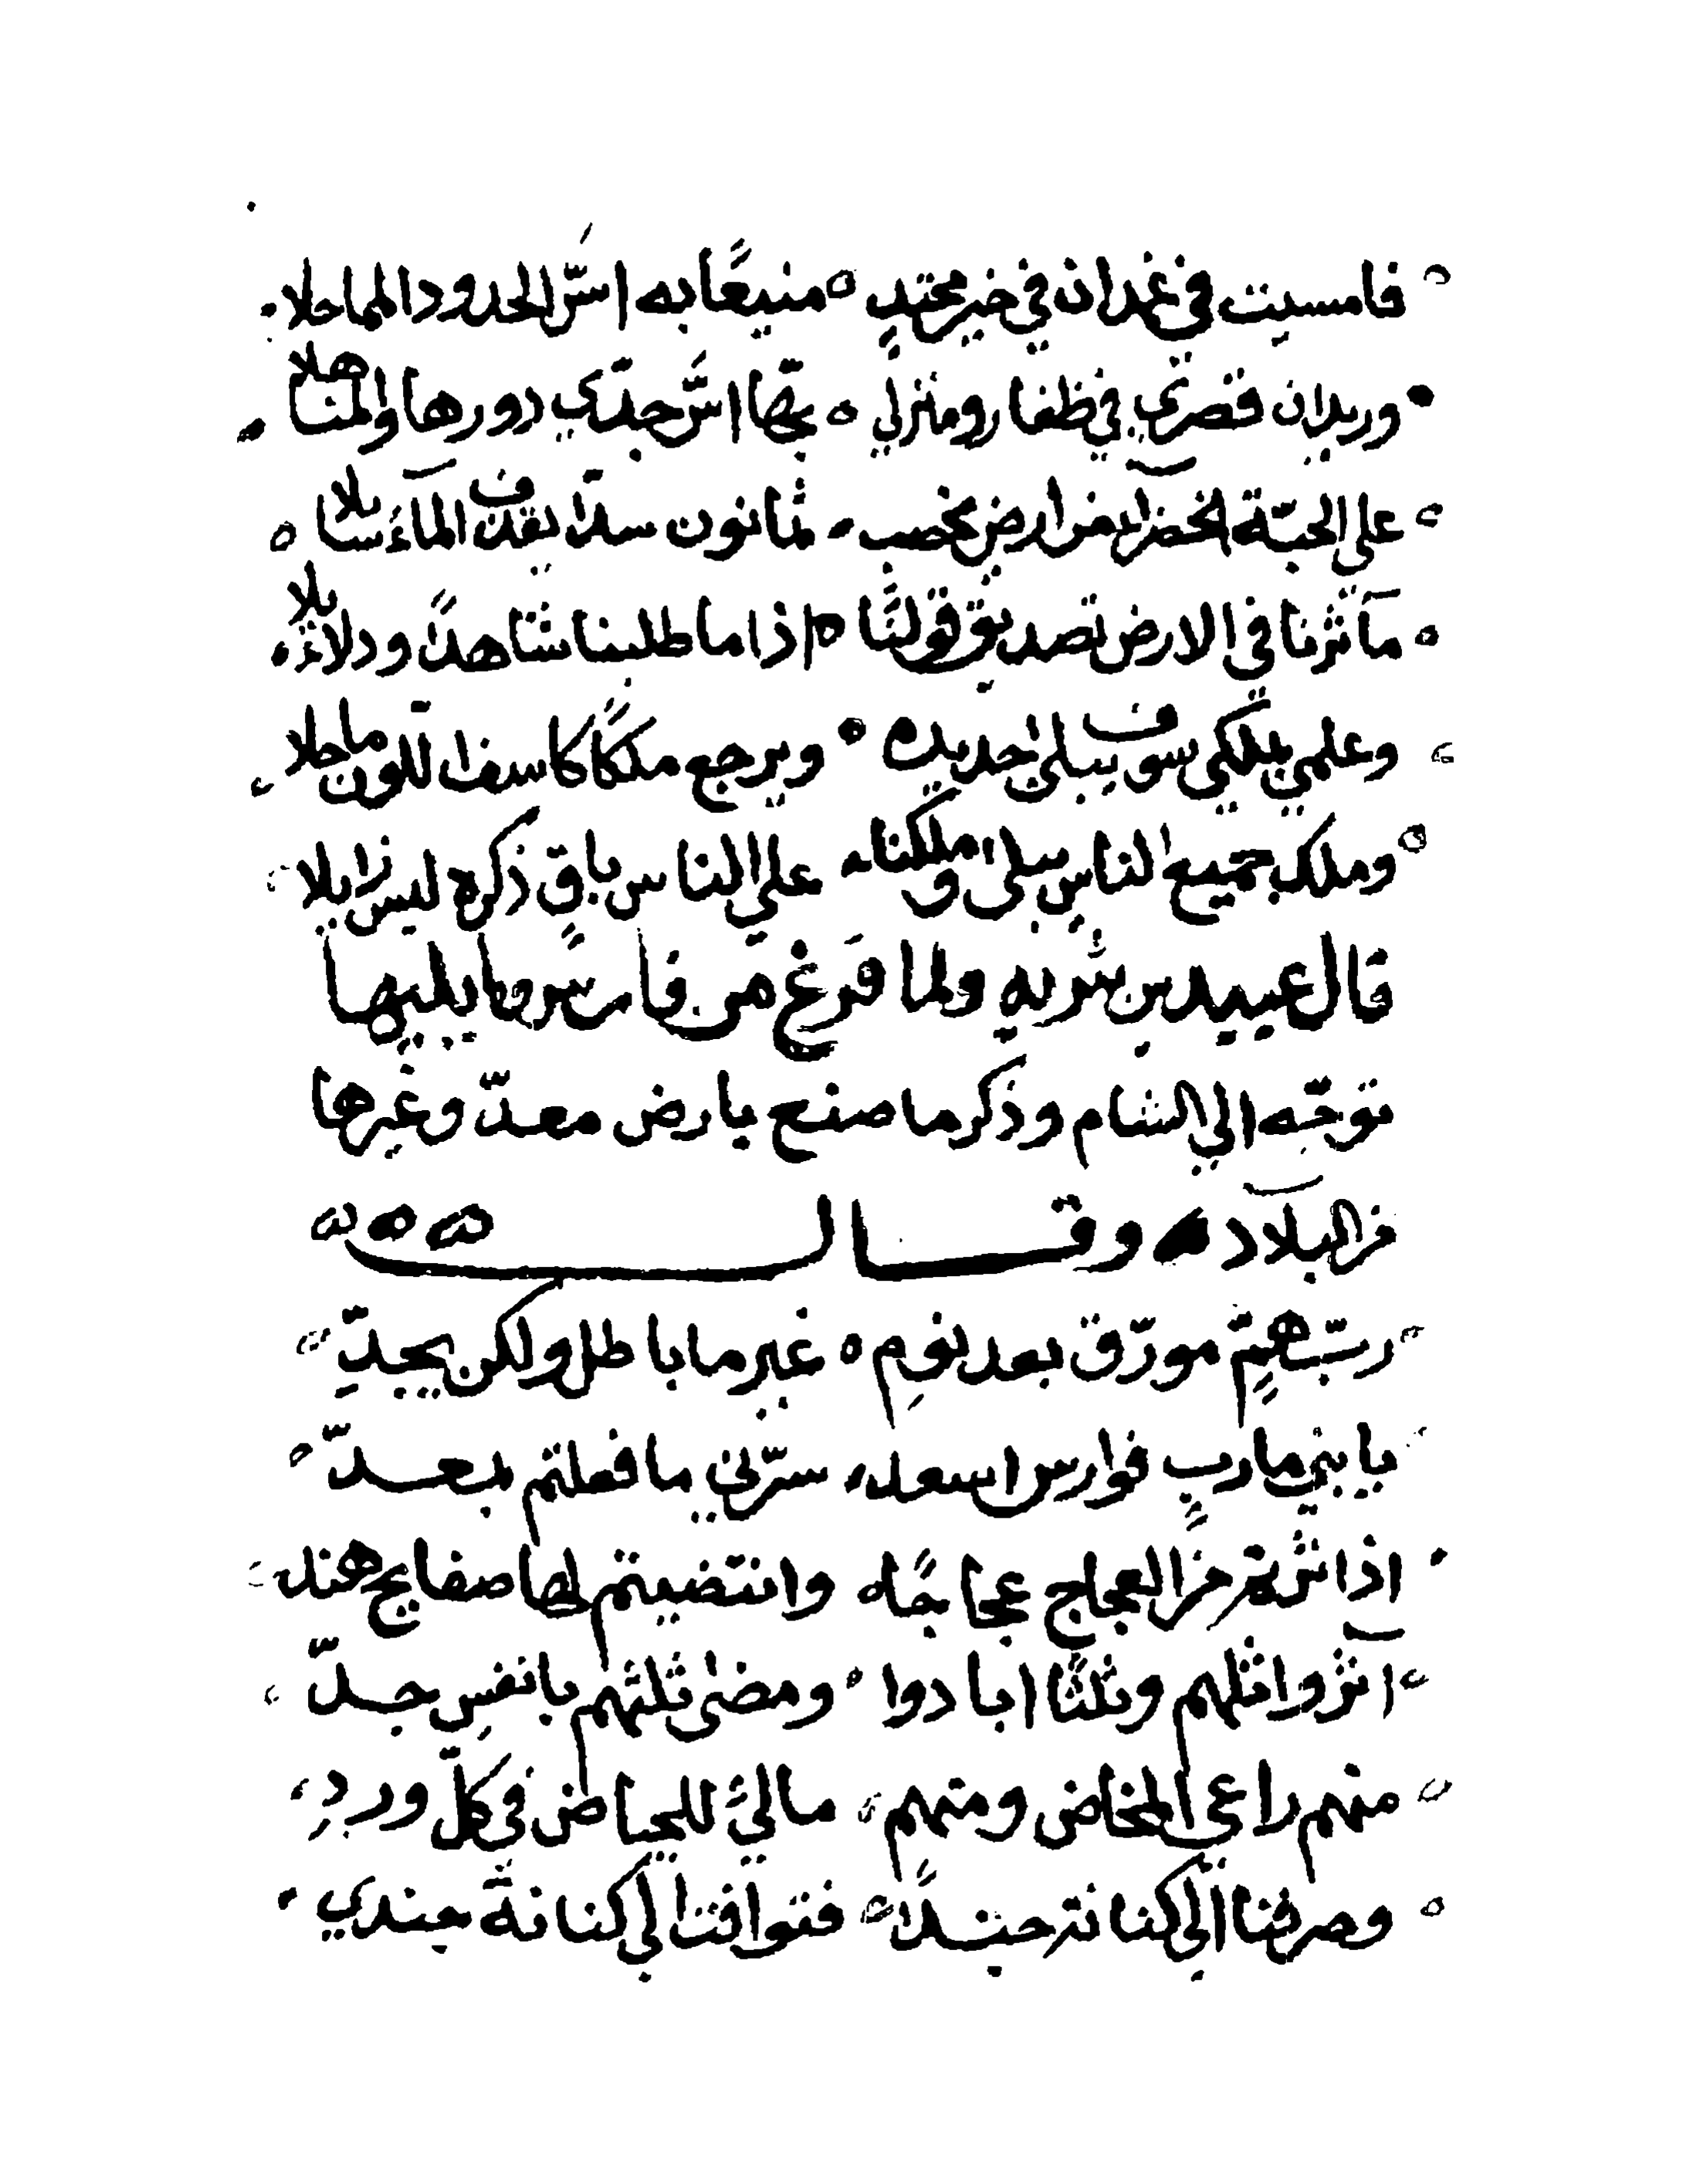 فامسيت في غمدان في خير محتدٍ ه منيعًا به اسّ الجدود المماحلا
وريدان قصري في ظفار ومنزلي ه بها اسّ جدّي دورها والمناهلا
على الجنّة الخضرآ من ارض يحصب ثمانون سدّا يقذف المآء سايلا
مآثرنا في الارض تصديق قولنا ه اذا ما طلبنا شاهدًا ودلايلا
وعلمي بملكي سوف يبلى جديده ه ويرجع ملكًا كاسف اللون ماحلا
وملك جميع الناس يبلى وملكنا على الناس باقٍ ذكره ليس زايلا
قال عبيد بن شريه ولما فرغ من فارس وما يليها
توجّه الي الشام وذكر ما صنع بارض معدّ وغيرها
من البلاد ه وقال ه ه ه
ربّ همٍّ مورّق بعد نومٍ ه غير ما باطل ولكن بجدّ
يا بني مارب فوارس اسعد سرّني ما فعلتم بمعدّ
اذا ثرتم من العجاج عجاجًا وانتضيتم لها صفايح هند
آثروا ثلثهم وثلثًا ابادوا ه ومضى ثلثهم بانفس جدّ
منهم راعي المخاض ومنهم مالئ للحياض في كلّ وردِ
وصرفنا الي كنانة جندًا فتوافتنا لي كنانة جندي